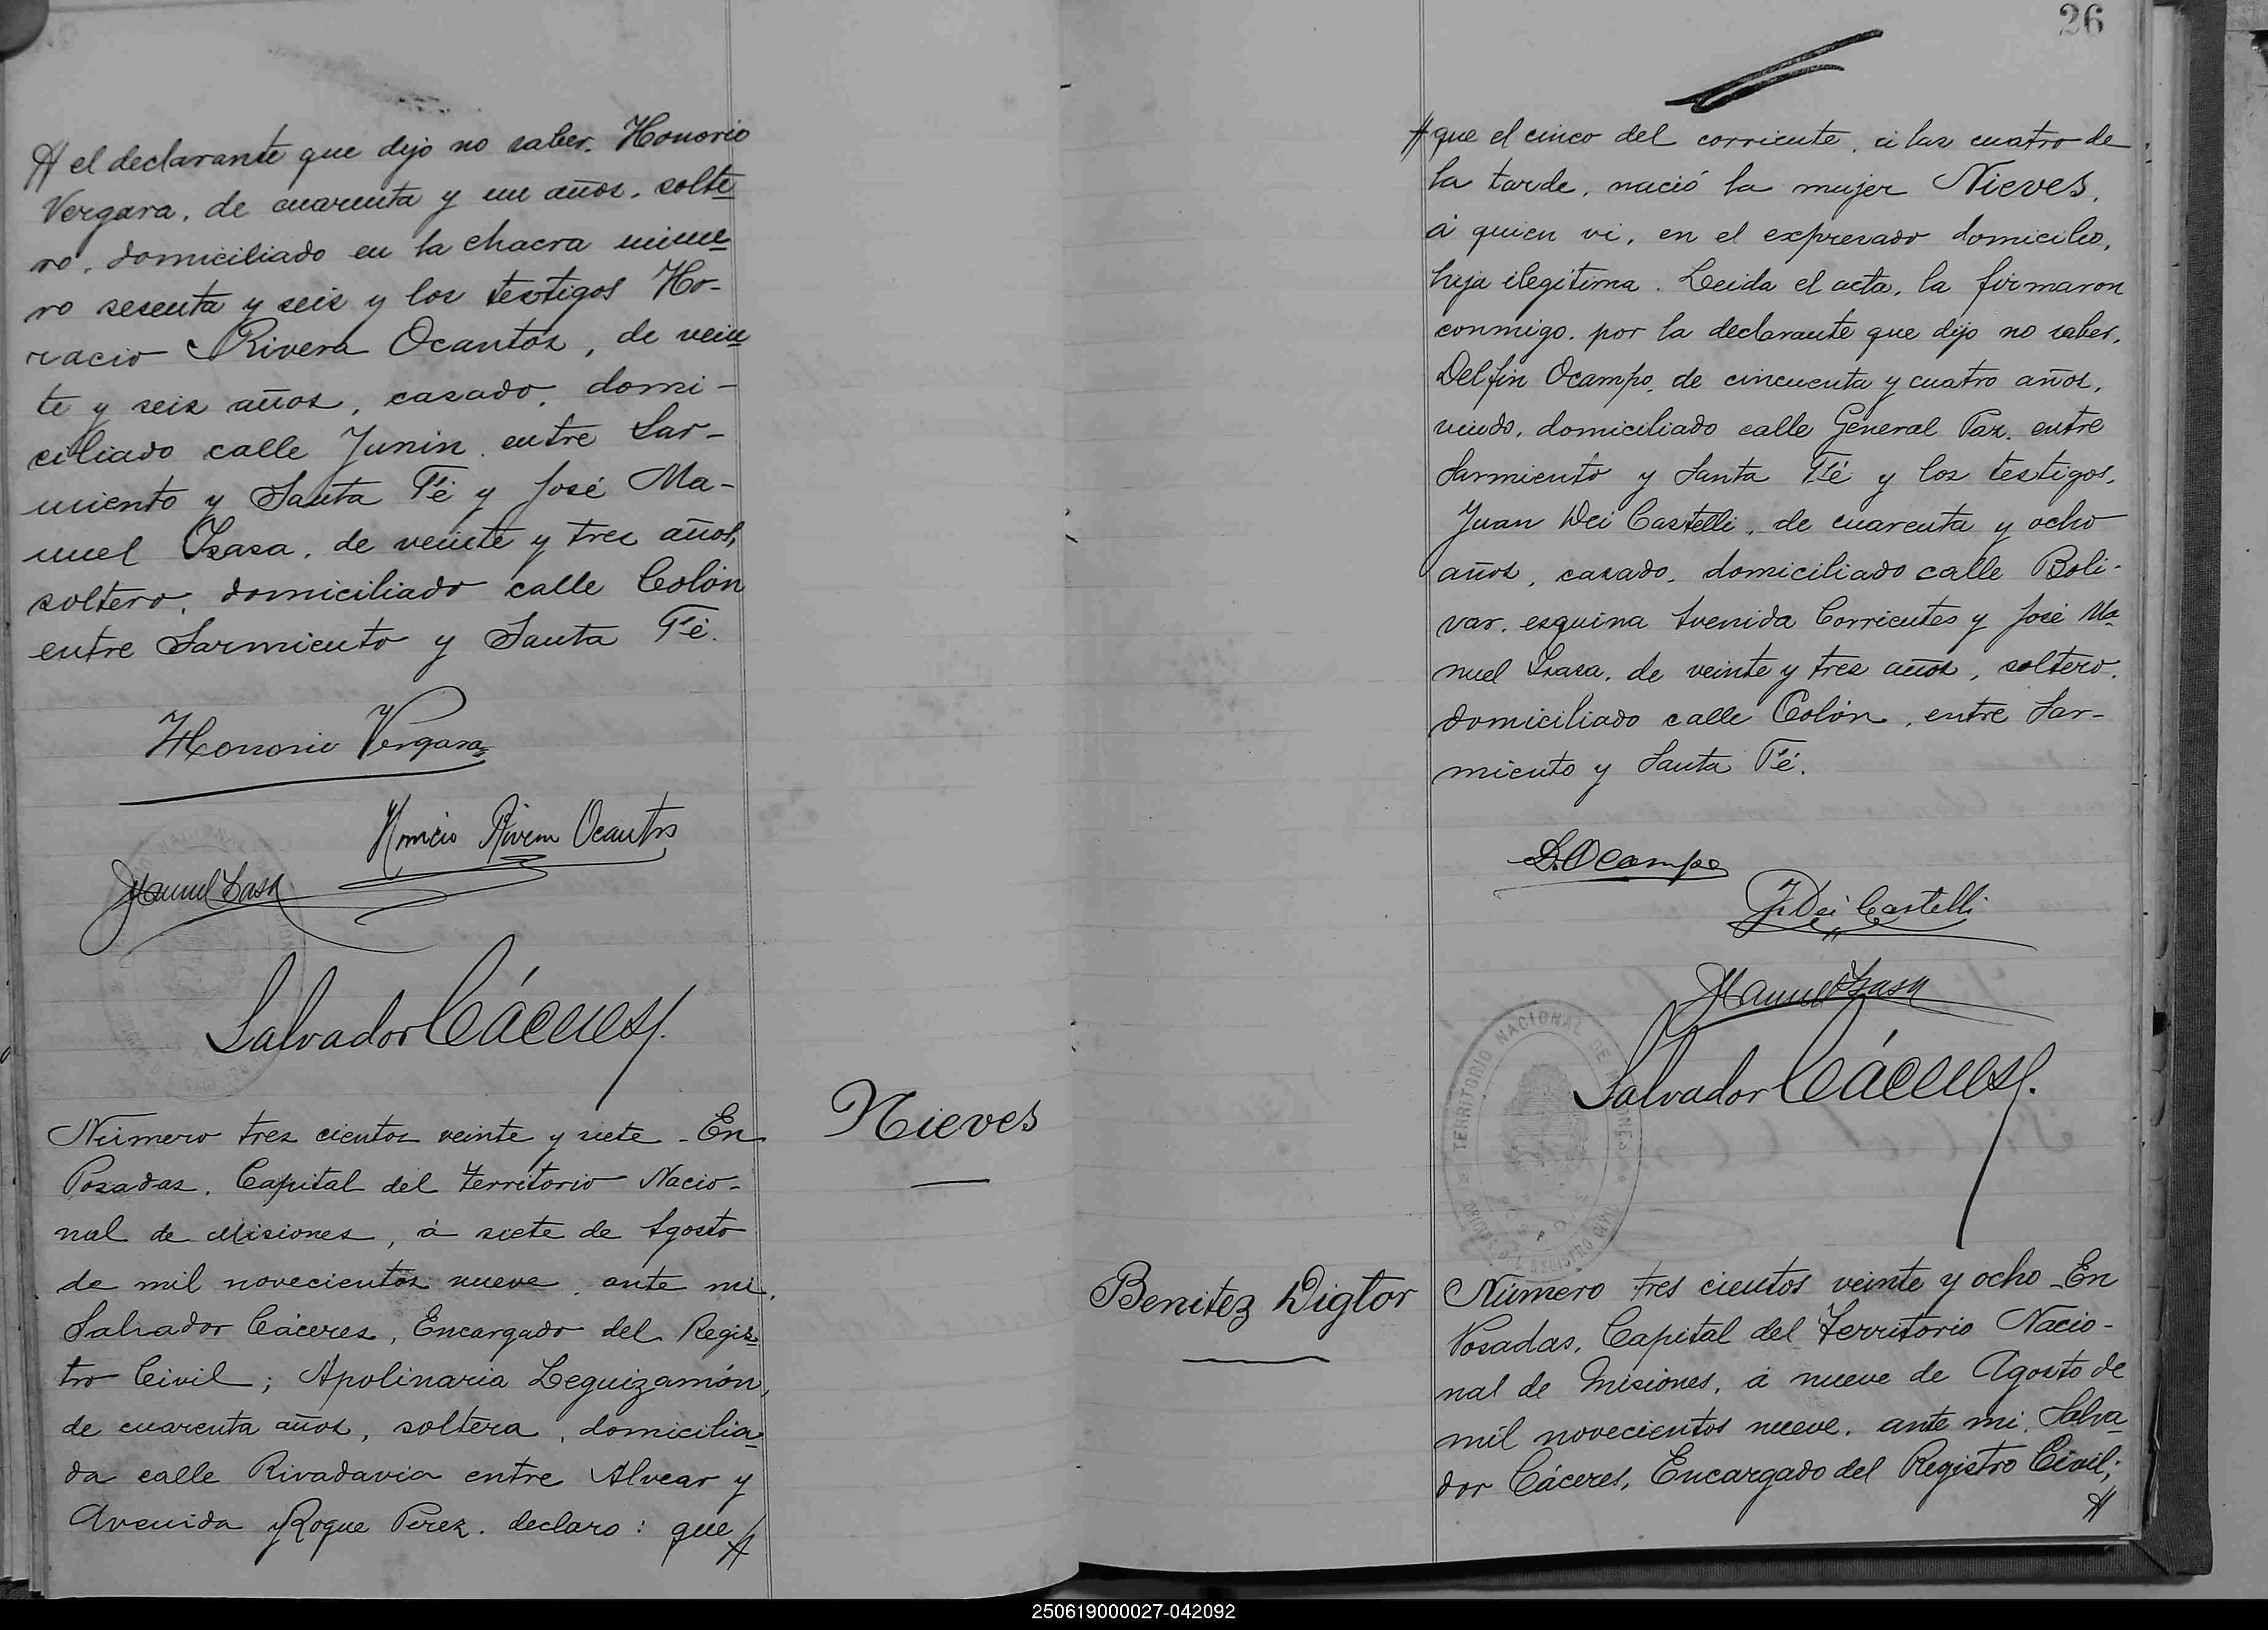 el declarante que dijo no saber. Honorio
Vergara, de cuarenta y un años, solte
ro, domiciliado en la chacra núme
ro sesenta y seis y los testigos Ho-
racio Rivera Ocantos, de vein
te y seis años, casado, domi-
ciliado calle Junin entre Sar-
miento y Santa Fé y José Ma-
nuel Isasa, de veinte y tres años,
soltero, domiciliado calle Colón
entre Sarmiento y Santa Fé.
Honorio Vergara
Horacio Rivera Ocantos
JManuel Isasa
Salvador Cáceres
Número tres cientos veinte y siete - En
Posadas, Capital del territorio Nacio-
nal de Misiones, á siete de Agosto
de mil novecientos nueve, ante mi,
Salvador Cáceres, Encargado del Regis
tro Civil; Apolinaria Leguizamón,
de cuarenta años, soltera, domicilia
da calle Rivadavia entre Alvear y
Avenida Roque Perez. declaro: que
Nieves
26
que el cinco del corriente, á las cuatro de
la tarde, nació la mujer Nieves,
á quien vi, en el expresado domicilio,
hija ilegítima. Leida el acta, la firmaron
conmigo, por la declarante que dijo no saber,
Delfin Ocampo, de cincuenta y cuatro años,
viudo, domiciliado calle General Paz, entre
Sarmiento y Santa Fé y los testigos,
Juan Dei Castelli, de cuarenta y ocho
años, casado, domiciliado calle Boli-
var, esquina Avenida Corrientes y José Ma
nuel Isasa, de veinte y tres años, soltero,
domiciliado calle Colón, entre Sar-
miento y Santa Fé.
D. Ocampo
J. Dei Castelli
JManuel Isasa
Salvador Cáceres
TERRITORIO NACIONAL DE MISIONES
OFICINA DEL REGISTRO CIVIL
Benitez Digtor
Número tres cientos veinte y ocho - En
Posadas, Capital del Territorio Nacio-
nal de Misiones, á nueve de Agosto de
mil novecientos nueve, ante mi, Salva
dor Cáceres, Encargado del Registro Civil;
250619000027-042092